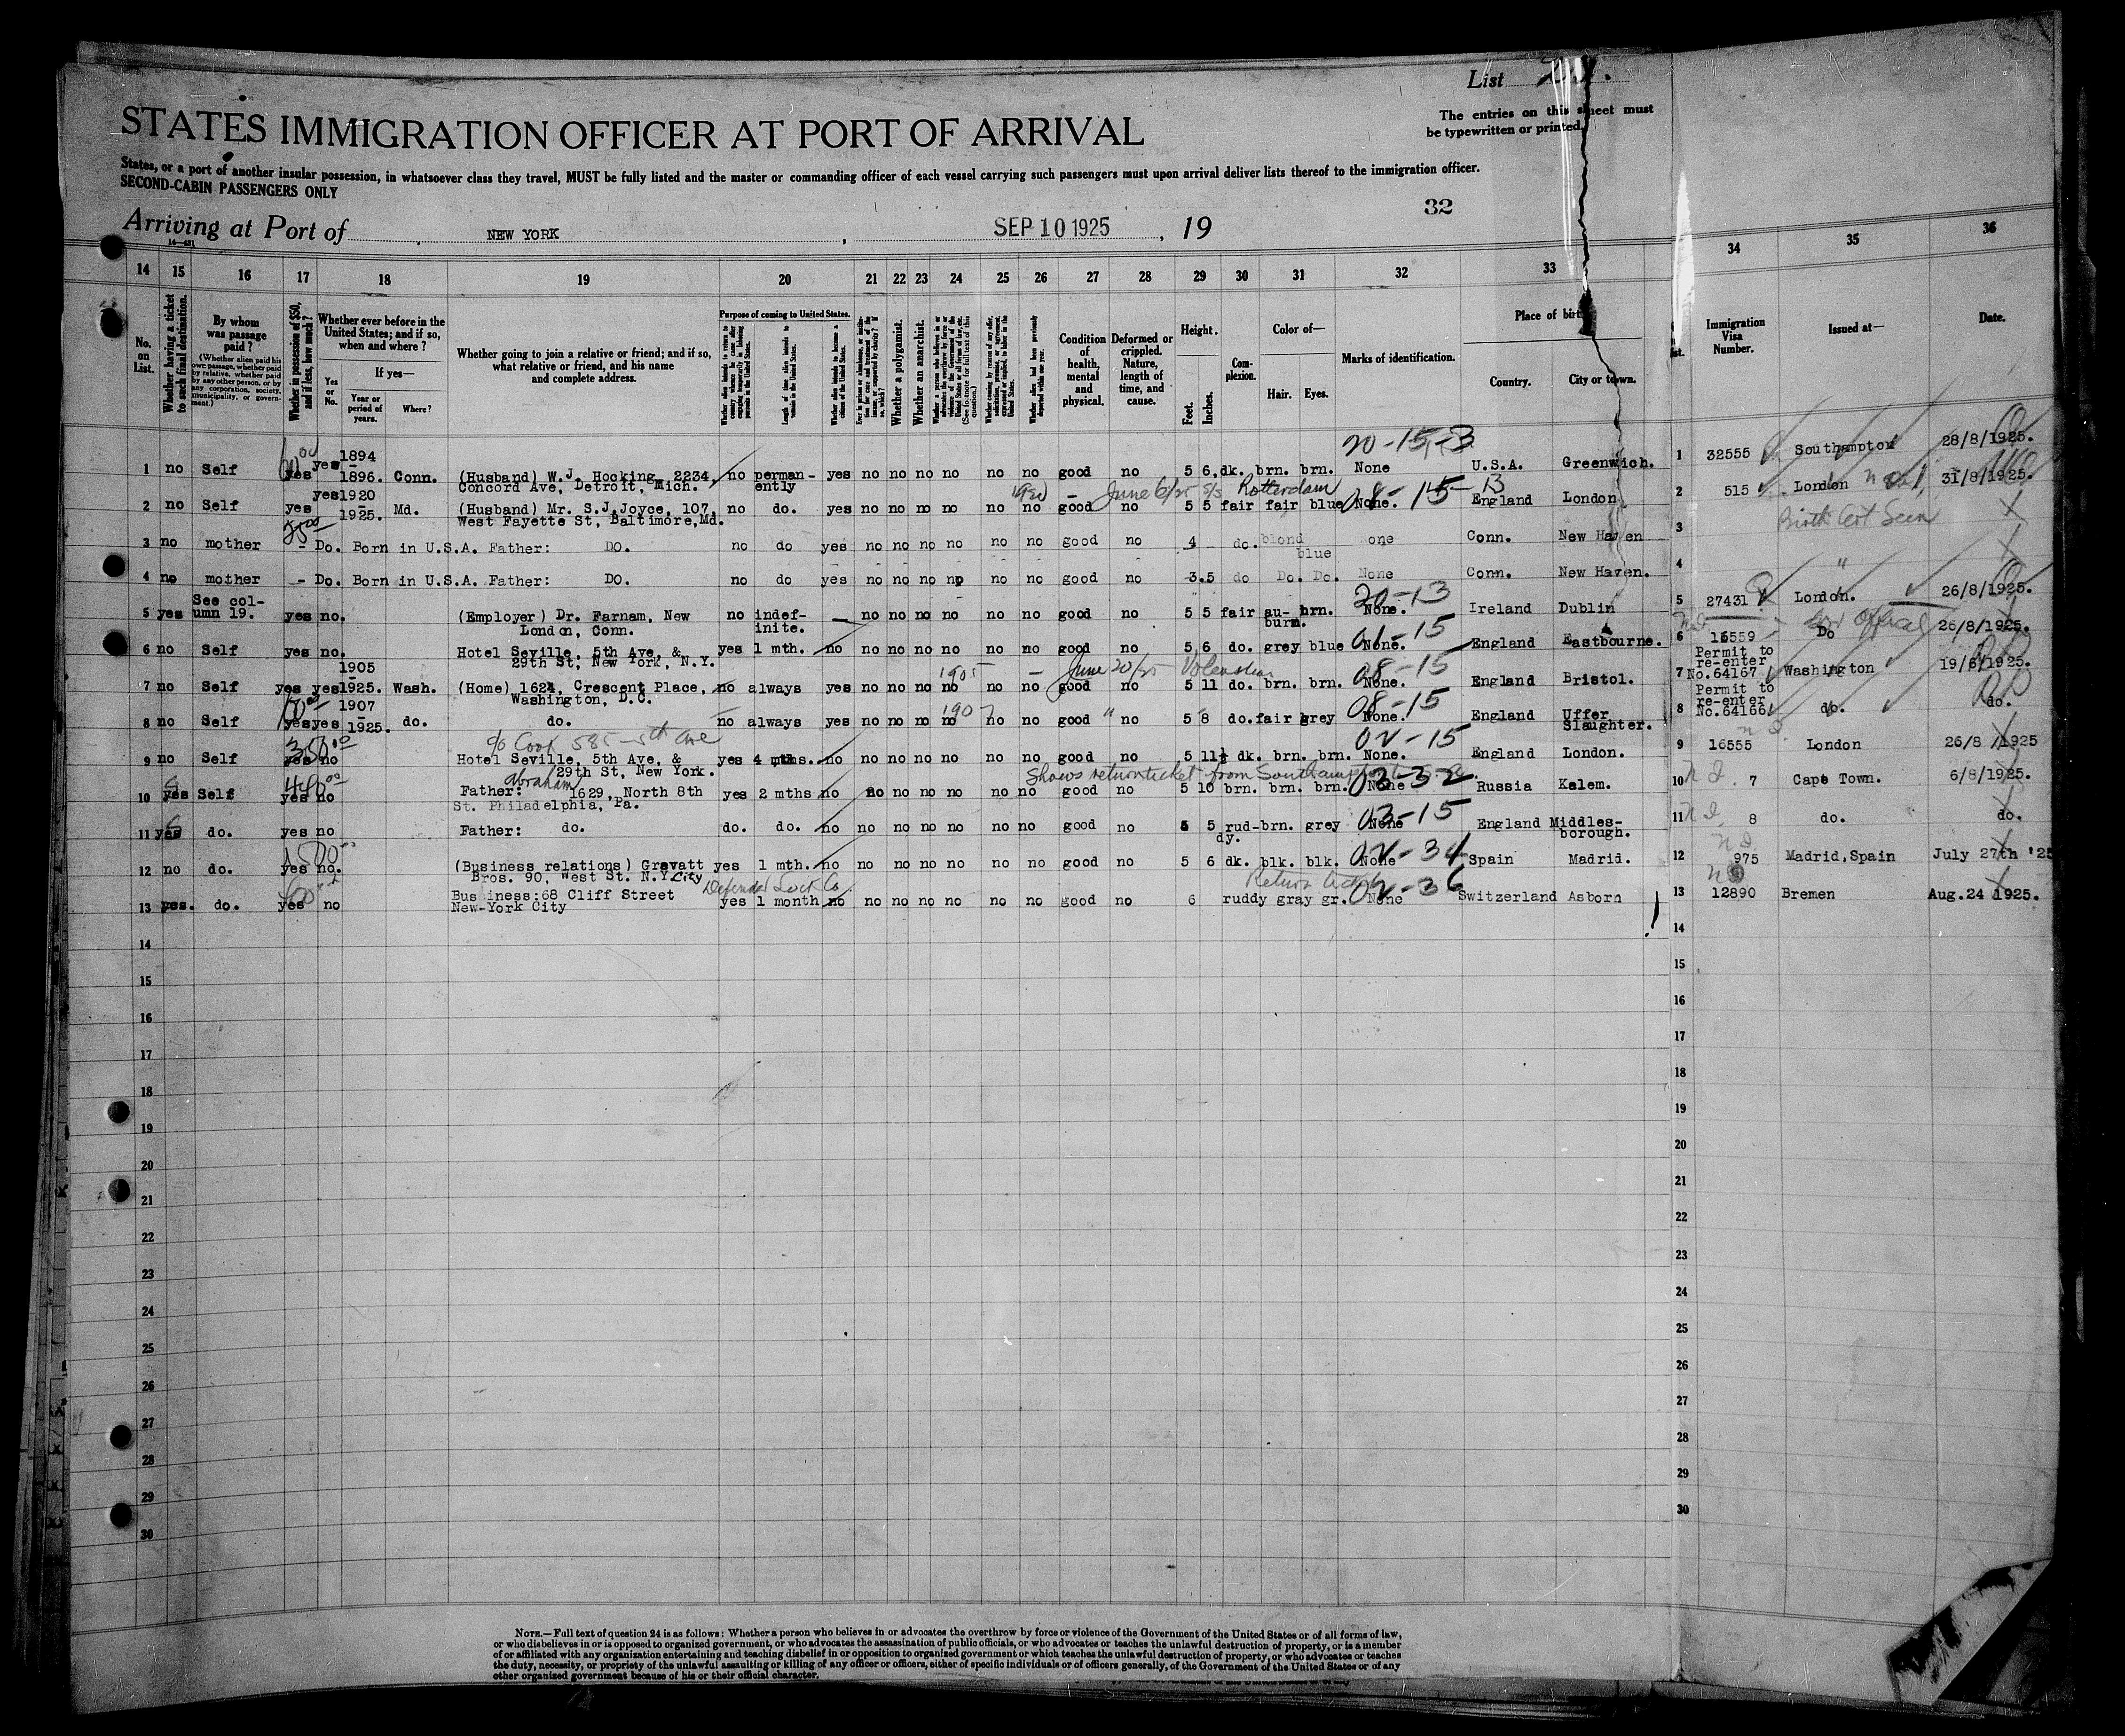 List
The entries on this sheet must
be typewritten or printed.
STATES IMMIGRATION OFFICER AT PORT OF ARRIVAL
States, or a port of another insular possession, in whatsoever class they travel, MUST be fully listed and the master or commanding officer of each vessel carrying such passengers must upon arrival deliver lists thereof to the immigration officer.
SECOND-CABIN PASSENGERS ONLY
32
Arriving at Port of NEW YORK, SEP 10 1925, 19
14 15 16 17 18 19 20 21 22 23 24 25 26 27 28 29 30 31 32 33 34 35 36
No. on List.
Whether having a ticket to such final destination.
By whom was passage paid?
(Whether alien paid his own passage, whether paid by relative, whether paid by any other person, or by any corporation, society, municipality, or government.)
Whether in possession of $50, and if less, how much?
Whether ever before in the United States; and if so, when and where?
Yes or No.
If yes—
Year or period of years.
Where?
Whether going to join a relative or friend; and if so, what relative or friend, and his name and complete address.
Purpose of coming to United States.
Length of time alien intends to remain in the United States.
Whether a polygamist.
Whether an anarchist.
Condition of health, mental and physical.
Deformed or crippled. Nature, length of time, and cause.
Height.
Feet.
Inches.
Complexion.
Color of—
Hair.
Eyes.
Marks of identification.
Place of birth
Country.
City or town.
Immigration Visa Number.
Issued at—
Date.
20-15-3
1 no Self yes yes 1894 - 1896. Conn. (Husband) W.J. Hocking, 2234, Concord Ave, Detroit, Mich. no permanently yes no no no no no no good no 5 6 dk. brn. brn. None U.S.A. Greenwich. 1 32555 Southampton 28/8/1925.
June 6/25 S/S Rotterdam
2 no Self yes yes 1920 - 1925. Md. (Husband) Mr. S.J.Joyce, 107, West Fayette St, Baltimore,Md. no do. yes no no no no no no good no 5 5 fair fair blue None. 08-15-13 England London 2 515 London 31/8/1925.
3 no mother - Do. Born in U.S.A. Father: DO. no do yes no no no no no no good no 4 do. blond blue one Conn. New Haven 3 Birth Cert Seen
4 no mother - Do. Born in U.S.A. Father: DO. no do yes no no no no no no good no 3.5 do Do. Do. None Conn. New Haven. 4 "
20-13
5 yes See column 19. yes no. (Employer) Dr. Farnam, New London, Conn. no indefinite. — no no no no no no good no 5 5 fair auburn. brn. None. Ireland Dublin 5 27431 London. 26/8/1925.
6 no Self yes no. Hotel Seville, 5th Ave, & 29th St, New York, N.Y. yes 1 mth. no no no no no no no good no 5 6 do. grey blue None. 01-15 England Eastbourne. 6 15559 Do 26/8/1925.
1905 June 20/25
7 no Self yes yes 1905 - 1925. Wash. (Home) 1624, Crescent Place, Washington, D.C. no always yes no no no no no no good no 5 11 do. brn. brn. None. 08-15 England Bristol. 7 Permit to re-enter No.64167 Washington 19/6/1925.
1907
8 no Self yes yes 1907 - 1925. do. do. no always yes no no no no no no good no 5 8 do. fair grey None. 08-15 England Uffer Slaughter. 8 Permit to re-enter No.64166 do. do.
c/o Cook 585-5th Ave
9 no Self yes no Hotel Seville, 5th Ave, & 29th St, New York. yes 4 mths. no no no no no no no good no 5 11½ dk. brn. brn. None. 02-15 England London. 9 16555 London 26/8/1925
Abraham
Shows return ticket from Southampton
10 yes Self yes no Father: 1629, North 8th St. Philadelphia, Pa. yes 2 mths no no no no no no no good no 5 10 brn. brn. brn. None 03-32 Russia Kalem. 10 7 Cape Town. 6/8/1925.
11 yes do. yes no Father: do. do. do. no no no no no no no good no 5 5 ruddy. brn. grey None 03-15 England Middlesborough. 11 8 do. do.
12 no do. yes no. (Business relations) Gravatt Bros. 90, West St. N.Y.City yes 1 mth. no no no no no no no good no 5 6 dk. blk. blk. None 02-34 Spain Madrid. 12 975 Madrid,Spain July 27th '25
Defender Lock Co
Return ticket
13 yes. do. yes no Business:68 Cliff Street New-York City yes 1 month no no no no no no no good no 6 ruddy gray gr. None 02-36 Switzerland Asborn 13 12890 Bremen Aug.24 1925.
14 14
15 15
16 16
17 17
18 18
19 19
20 20
21 21
22 22
23 23
24 24
25 25
26 26
27 27
28 28
29 29
30 30
NOTE.—Full text of question 24 is as follows: Whether a person who believes in or advocates the overthrow by force or violence of the Government of the United States or of all forms of law,
or who disbelieves in or is opposed to organized government, or who advocates the assassination of public officials, or who advocates or teaches the unlawful destruction of property, or is a member
of or affiliated with any organization entertaining and teaching disbelief in or opposition to organized government or which teaches the unlawful destruction of property, or who advocates or teaches
the duty, necessity, or propriety of the unlawful assaulting or killing of any officer or officers, either of specific individuals or of officers generally, of the Government of the United States or of any
other organized government because of his or their official character.